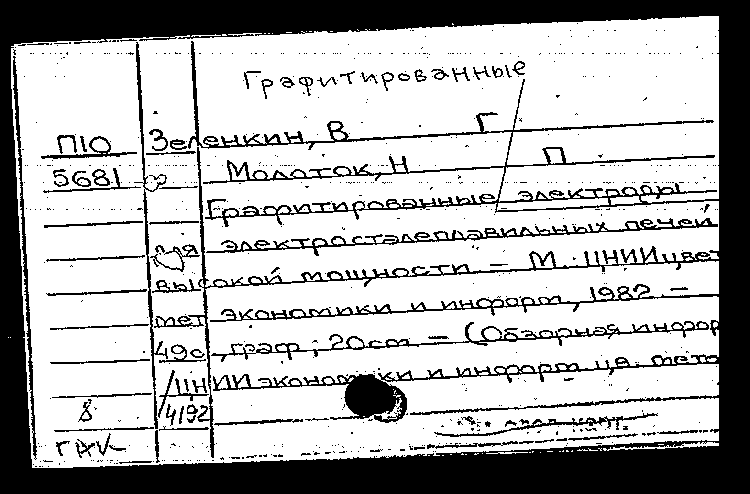 Графитированные
П10 Зеленкин, В Г
5681 Молоток, Н П
Графитированные электроды
для электросталеплавильных печей
высокой мощности – М. ЦНИИцвет
мет экономики и информ, 1982 –
49с, граф; 20cm – (Обзорная инфор
/ЦНИИ экономики и информ цв. мета
8 /4192
ГАК